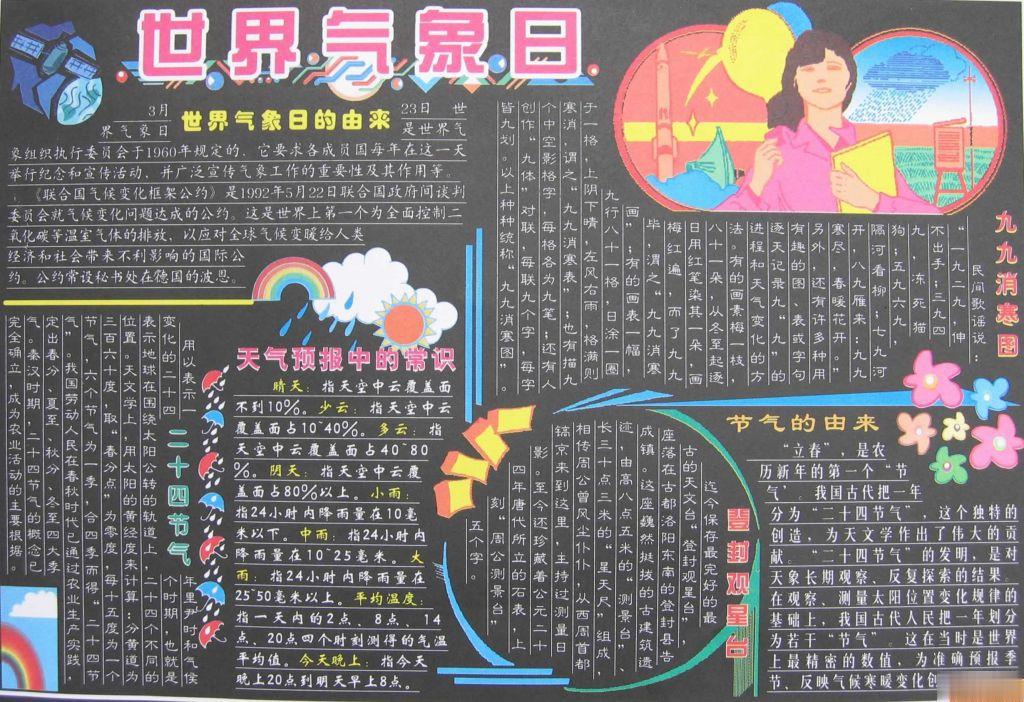 世界气象日
世界气象日的由来
3月23日 世
界气象日是世界气
象组织执行委员会于1960年规定的，它要求各成员国每年在这一天
举行纪念和宣传活动，并广泛宣传气象工作的重要性及其作用等。
《联合国气候变化框架公约》是1992年5月22日联合国政府间谈判
委员会就气候变化问题达成的公约。这是世界上第一个为全面控制二
氧化碳等温室气体的排放，以应对全球气候变暖给人类
经济和社会带来不利影响的国际公
约。公约常设秘书处在德国的波恩。
九九消寒图
民间歌谣说：
“一九二九，伸
不出手；三九四
九，冻死猫
狗；五九六九，
隔河看柳；七九河
开，八九雁来；九九
寒尽，春暖花开。”
另外，还有许多种用
有趣的图、表或字句
逐天记录九“九”的
进程和天气变化的方
法。有的画素梅一枝，
八十一朵，从冬至起逐
日用红笔染其一朵，
梅红遍，而了九九
毕，谓之“九九消寒
画”；有的画表一幅，
九行八十一格，日涂一圈
于一格，上阴下晴，左风右雨，格满则
寒消，谓之“九九消寒表”；也有描九
个中空影格字，每格各为九笔，还有人
创作“九体”对联，每联九个字，每字
皆九划。以上种种统称“九九消寒图”。
天气预报中的常识
晴天：指天空中云覆盖面
不到10%。少云：指天空中云
覆盖面占10~40%。多云：指
天空中云覆盖面占40~80
%。阴天：指天空中云覆
盖面占80%以上。小雨：
指24小时内降雨量在10毫
米以下。中雨：指24小时内
降雨量在10~25毫米。大
雨：指24小时内降雨量在
25~50毫米以上。平均温度：
指一天内的2点、8点、14
点、20点四个时刻测得的气温
平均值。今天晚上：指今天
晚上20点到明天早上8点。
二十四节气
用以表示一
年里尹时和气候
变化的二十四
个时期，也就是
表示地球在围绕太阳公转的轨道上，二十四个不同的
位置。天文学上，用太阳的黄经度来计算：分黄道为
三百六十度，取“春分点”为零度，每十五度为一个
节气，六个节气为一季，合四季而得“二十四节
气”。我国劳动人民在春秋时代已通过农业生产实践，
定出春分、夏至、秋分、冬至四大季节
气。秦汉时期，二十四节气的概念已
完全确立，成为农业活动的主要根据。
登封观星台
迄今保存最完好的最
古的天文台“登封观星台”，
座落在古都洛阳东南的登封县告
成镇。这座巍然挺拔的古建筑遗
迹，由高八点五米的“测景台”、
长三十点三米的“星天尺”组成。
相传周公曾风尘仆仆，从西周首都
镐京来到这里，主持过测量日
影。至今还珍藏着公元二十
四年唐代所立的石表，上
刻“周公测景台”
五个字。
节气的由来
“立春”，是农
历新年的第一个“节
气”。我国古代把一年
分为“二十四节气”，这个独特的
创造，为天文学作出了伟大的贡
献。“二十四节气”的发明，是对
天象长期观察、反复探索的结果。
在观察、测量太阳位置变化规律的
基础上，我国古代人民把一年划分
为若干“节气”。这在当时是世界
上最精密的数值，为准确预报季
节、反映气候寒暖变化创